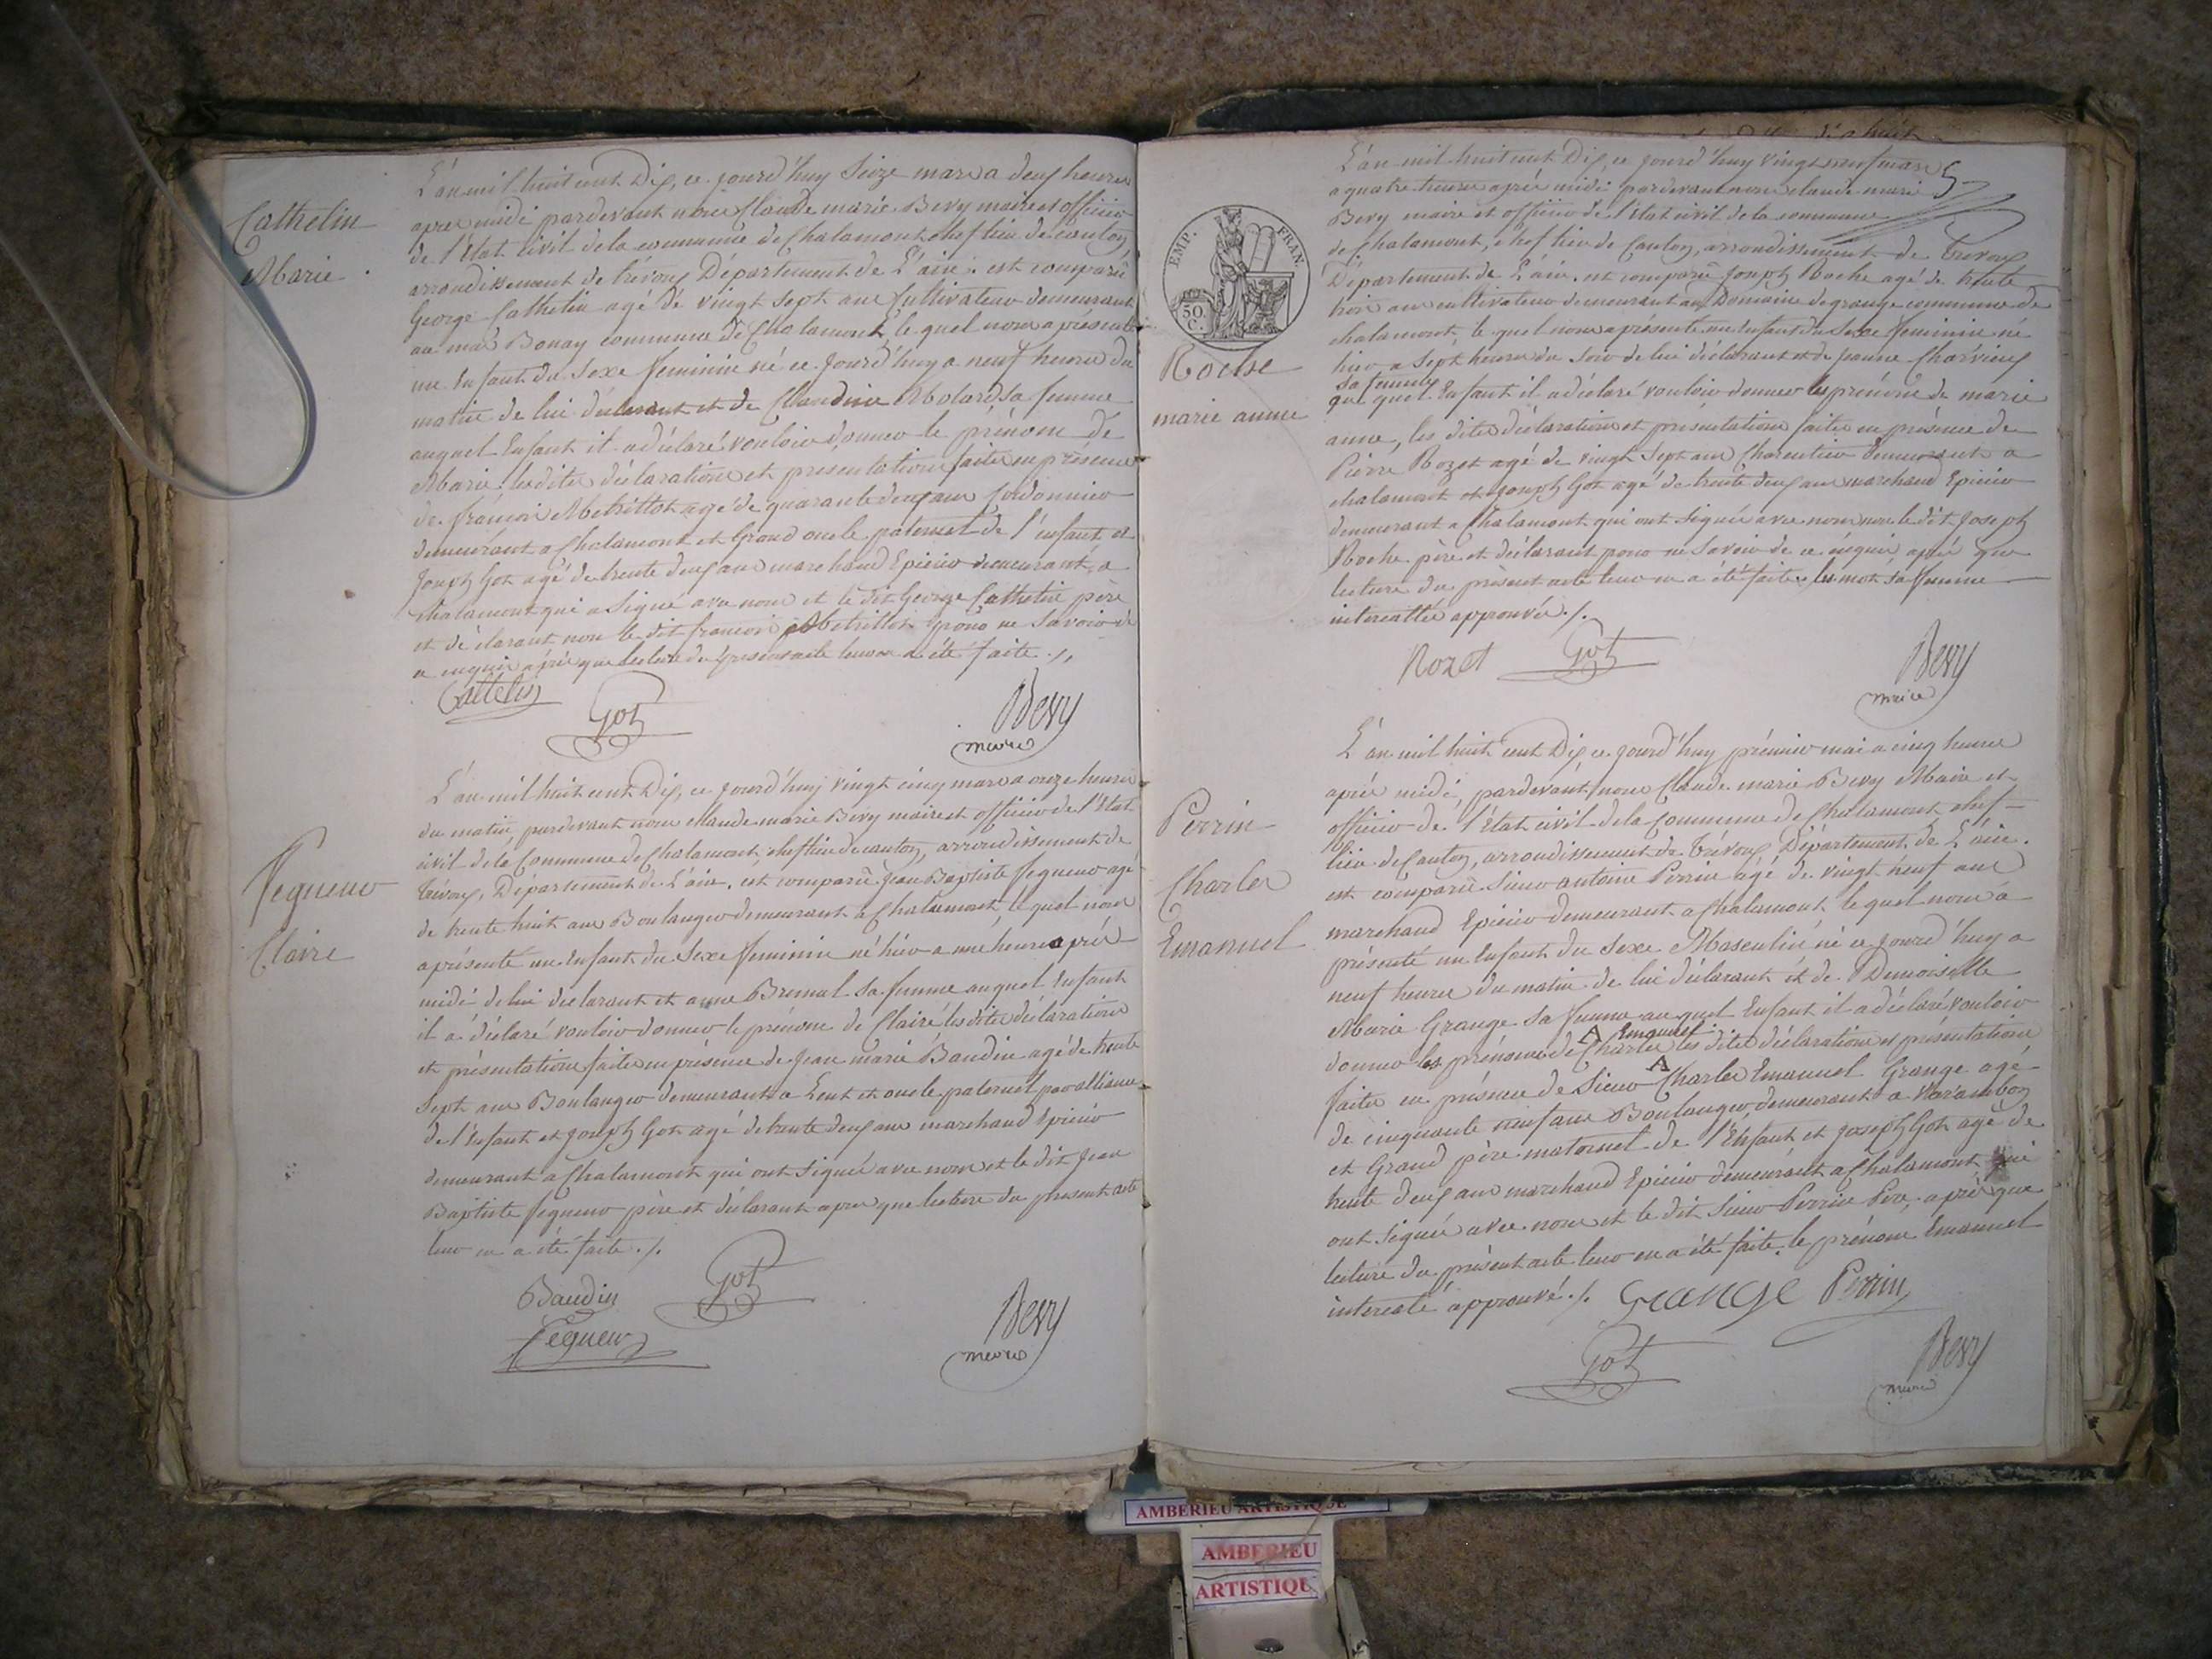 Cathelin
Marie
L'an mil huit cent Dix, ce jourd'huy Seize mars a deux heures
apres midi pardevant nous Claude marie Bevy maire et officier
de l'Etat Civil de la commune de Chalamont chef lieu de canton
arrondissement de Trévoux Département de L'ain. est comparu
George Cathelin agé de vingt sept ans Cultivateur demeurant
au mas Bonay commune de Chalamont, le quel nous a présenté
un Enfant du Sexe feminin né ce jourd'huy a neuf heures du
matin de lui déclarant et de Claudine Molard sa femme
auquel Enfant il a déclaré vouloir donner le prénom de
Marie les dites déclaration et presentation faites en présence
de françois Metrillot agé de quarante deux ans Cordonnier
demeurant a Chalamont et Grand oncle paternel de l'enfant et
Joseph Got agé de trente deux ans marchand Epicier demeurant a
chalamont qui a Signé avec nous et le dit George Cathelin père
et déclarant non le dit francois Metrillot pour ne Savoir de
ce enquis après que lecture du présent acte leur en a été faite ./.
Cattelin
Got
Bevy
maire
Fegueur
Claire
L'an mil huit cent Dix, ce jourd'huy vingt cinq mars a onze heures
du matin, pardevant nous claude marie Bevy maire et officier de l'Etat
civil de la Commune de Chalamont, chef lieu de canton, arrondissement de
Trévoux, Département de L'ain. est comparu Jean Baptiste Fegueur agé
de trente huit ans Boulanger demeurant a Chalamont, le quel nous
a présenté un Enfant du Sexe feminin né hier a une heure après
midi de lui declarant et anne Brunal Sa femme auquel Enfant
il a déclaré vouloir donner le prénom de Claire les dites déclaration
et présentation faites en présence de Jean marie Baudin agé de trente
Sept ans Boulanger demeurant a Lent et oncle paternel par alliance
de l'Enfant et Joseph Got agé de trente deux ans marchand Epicier
demeurant a Chalamont qui ont Signés avec nous et le dit Jean
Baptiste Fegueur père et déclarant apres que lecture du present acte
leur en a été faite ./.
Baudin
Got
Fegueur
Bevy
maire
5
EMP. FRAN
50.
C.
Roche
marie anne
L'an mil huit cent Dix, ce jourd'huy vingt neuf mars
a quatre heures après midi pardevant nous claude marie
Bevy maire et officier de l'Etat civil de la commune
de Chalamont, chef lieu de Canton, arrondissement de Trevoux
Département de L'ain. est comparu Joseph Roche agé de trente
trois ans cultivateur demeurant au Domaine de grange commune de
chalamont, le quel nous a présenté un Enfant du Sexe feminin né
hier a Sept heures du Soir de lui déclarant et de Jeanne Charvieux
sa femme
auquel Enfant il a déclaré vouloir donner les prénoms de marie
anne, les dites déclaration et présentation faites en présence de
Pierre Rozet agé de vingt Sept ans Charentier demeurant a
chalamont et Joseph Got agé de trente deux ans marchand Epicier
demeurant a Chalamont qui ont Signés avec nous non le dit Joseph
Roche père et déclarant pour ne Savoir de ce enquis après que
lecture du présent acte leur en a été faite, les mots sa femme
intercallés approuvés ./.
Rozet
Got
Bevy
maire
Perrin
Charles
Emanuel
L'an mil huit cent Dix, ce jourd'huy prémier mai a cinq heures
après midi, pardevant nous Claude marie Bevy Maire et
officier de l'Etat civil de la Commune de Chalamont chef
lieu de Canton, arrondissement de Trévoux Département de L'ain.
est comparu Sieur antoine Perrin agé de vingt neuf ans
marchand Epicier demeurant a Chalamont le quel nous a
présenté un Enfant du Sexe Masculin né ce jourd'huy a
neuf heures du matin de lui déclarant et de Demoiselle
Marie Grange Sa femme au quel Enfant il a déclaré vouloir
A Emanuel
donner les prénoms de Charles A les dites déclaration et présentation
faites en présence de Sieur Charles Emanuel Grange agé
de cinquante neuf ans Boulanger demeurant a Varambon
et Grand père maternel de l'Enfant et Joseph Got agé de
trente deux ans marchand Epicier demeurant a Chalamont, qui
ont Signés avec nous et le dit Sieur Perrin Père, après que
lecture du présent acte leur en a été faite. le prénom Emanuel
intercalé approuvé ./. Grange Perrin
Got
Bevy
maire
AMBERIEU ARTISTIQUE
AMBERIEU
ARTISTIQU